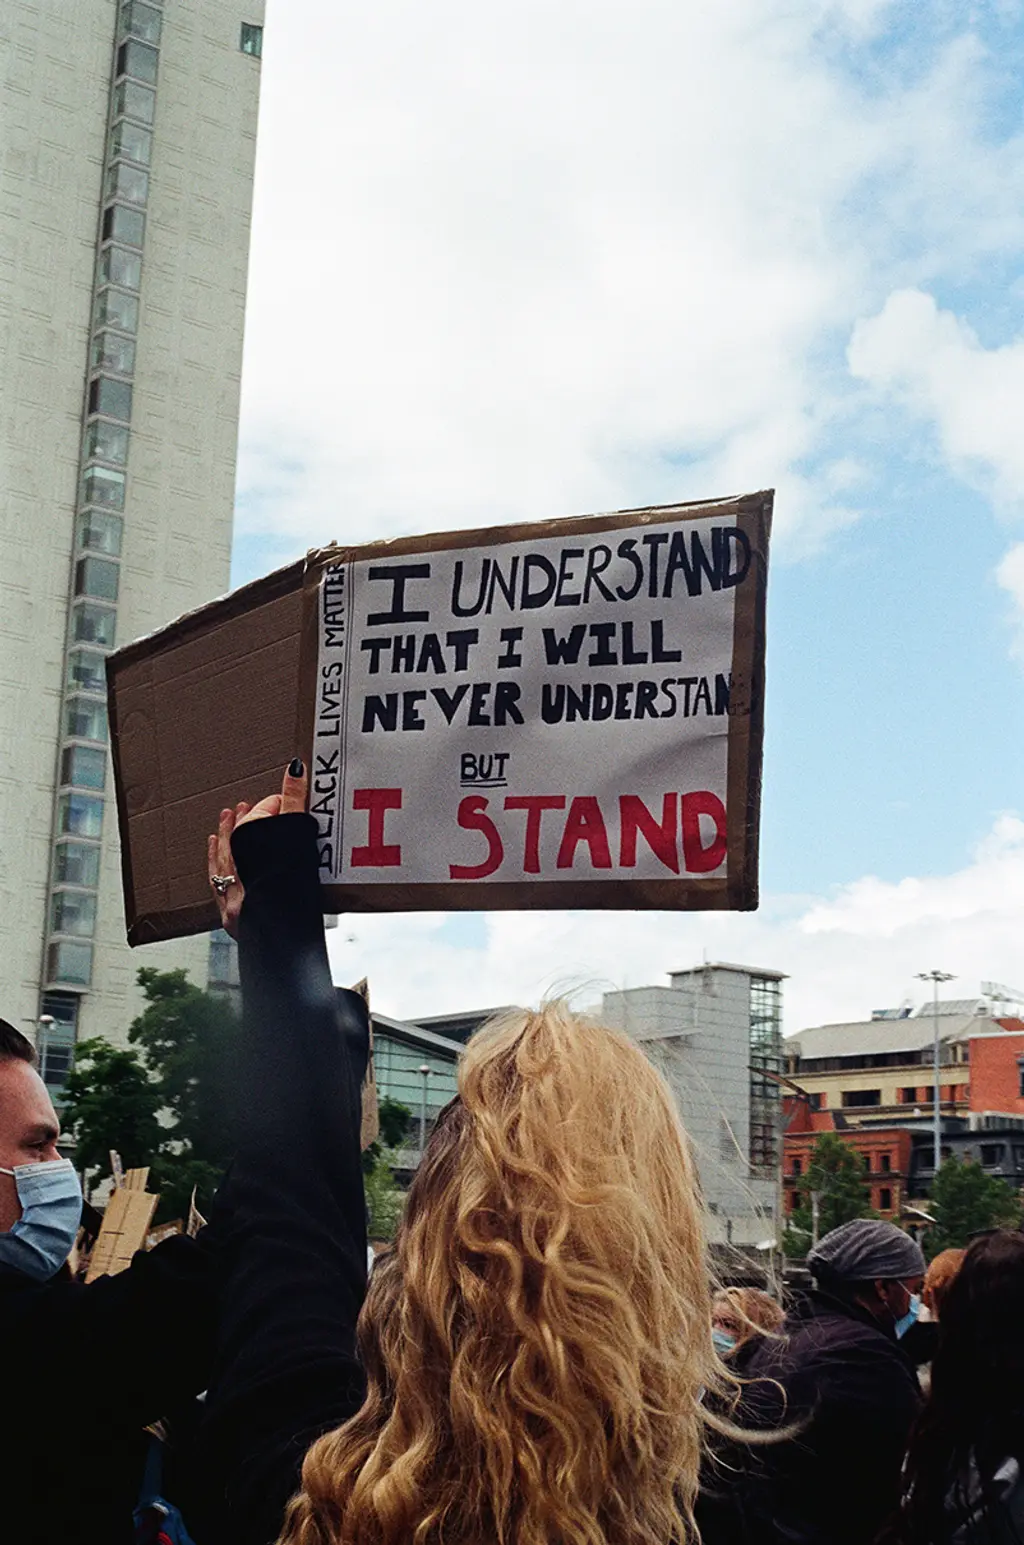 BLACK LIVES MATTER
I UNDERSTAND
THAT I WILL
NEVER UNDERSTAN
BUT
I STAND